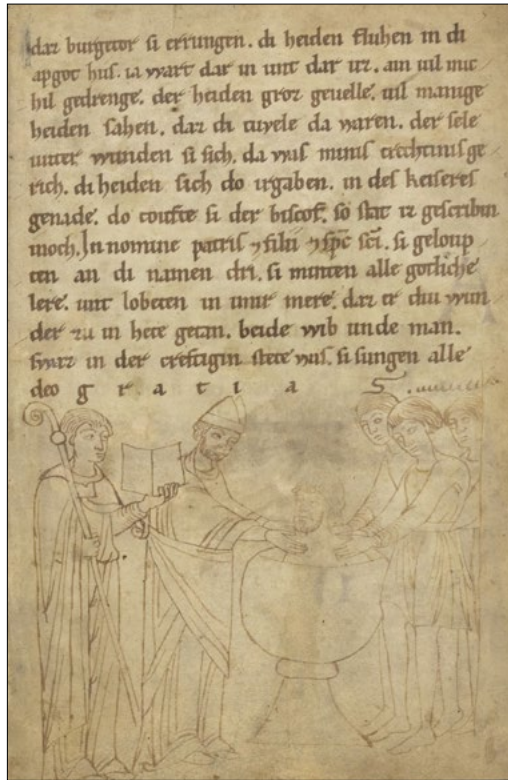 daz burgetor si errungen. di heiden fluhen in di
apgot hus. ia wart dar in unt dar uz. ain uil mic
hil gedrenge. der heiden groz geuelle. uil manige
heiden sahen. daz di tuuele da waren. der sele
unter wunden si sich. da was minis trechtinis ge
rich. di heiden sich do irgaben. in des keiseres
genade. do toufte si der biscof. so stat iz gescribin
noch. In nomine patris ⁊ filii ⁊ sp̄c sc̄i. si geloup
ten an di namen dri. si minten alle gotliche
lere. unt lobeten in imir mere. daz er diu wun
der zu in hete getan. beide wib unde man.
swaz in der creftigin stete was. si sungen alle
deo g r a t i a s.